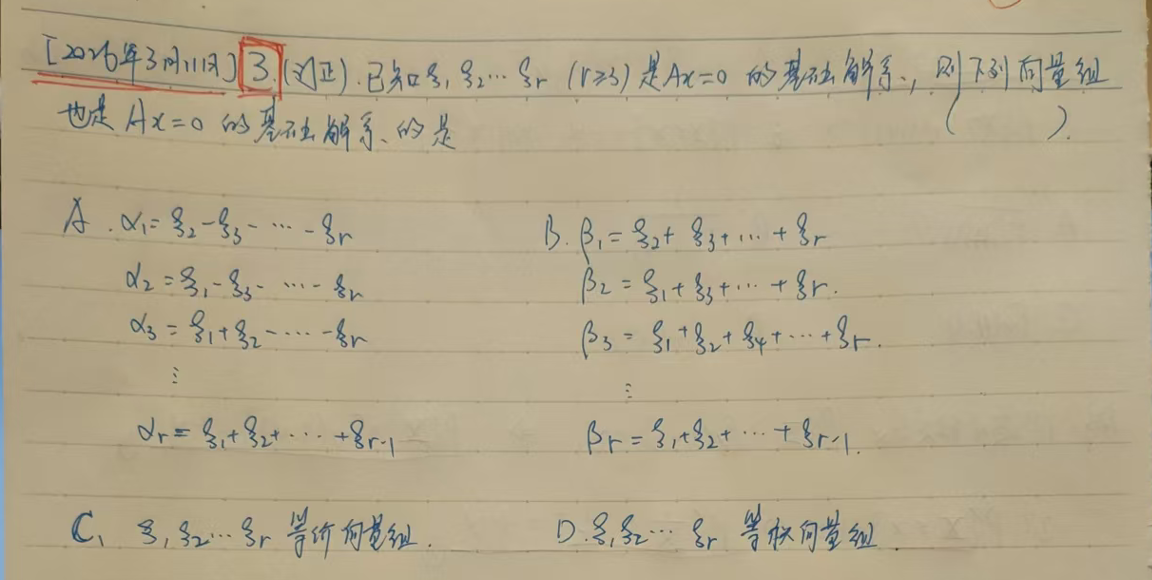 [2026年3月11日] 3. (订正). 已知ξ₁ ξ₂…ξr (r≥3) 是Ax=0 的基础解系, 则下列向量组
也是 Ax=0 的基础解系的是 ( ).
A. α₁=ξ₂-ξ₃-…-ξr B. β₁=ξ₂+ξ₃+…+ξr
α₂=ξ₁-ξ₃-…-ξr β₂=ξ₁+ξ₃+…+ξr.
α₃=ξ₁+ξ₂-…-ξr β₃=ξ₁+ξ₂+ξ₄+…+ξr.
⋮ ⋮
αr=ξ₁+ξ₂+…+ξr-1 βr=ξ₁+ξ₂+…+ξr-1.
C. ξ₁ξ₂…ξr 等价向量组. D. ξ₁ξ₂…ξr 等秩向量组